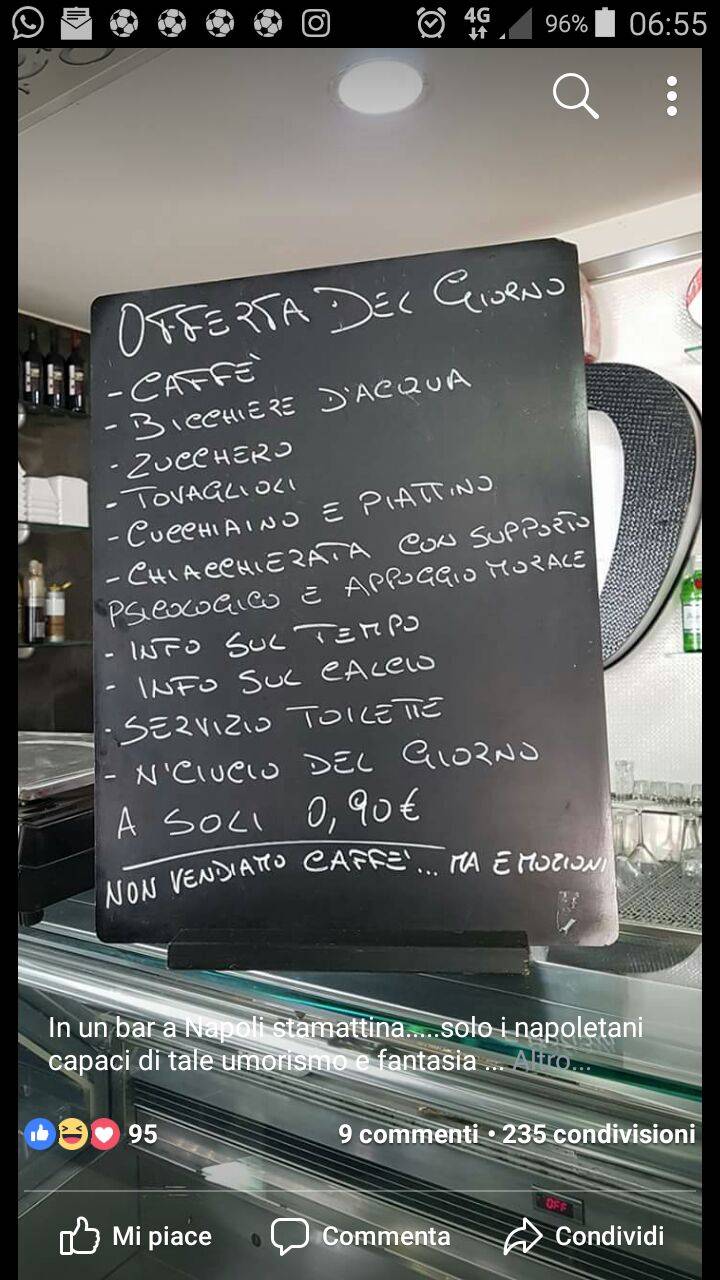 4G
96%
06:55
OFFERTA DEL GIORNO
- CAFFÈ
- BICCHIERE D'ACQUA
- ZUCCHERO
- TOVAGLIOLI
- CUCCHIAINO E PIATTINO
- CHIACCHIERATA CON SUPPORTO
PSICOLOGICO E APPOGGIO MORALE
- INFO SUL TEMPO
- INFO SUL CALCIO
- SERVIZIO TOILETTE
- N'CIUCIO DEL GIORNO
A SOLI 0,90€
NON VENDIAMO CAFFE'... MA EMOZIONI
In un bar a Napoli stamattina.....solo i napoletani
capaci di tale umorismo e fantasia ... Altro...
95
9 commenti • 235 condivisioni
OFF
Mi piace
Commenta
Condividi